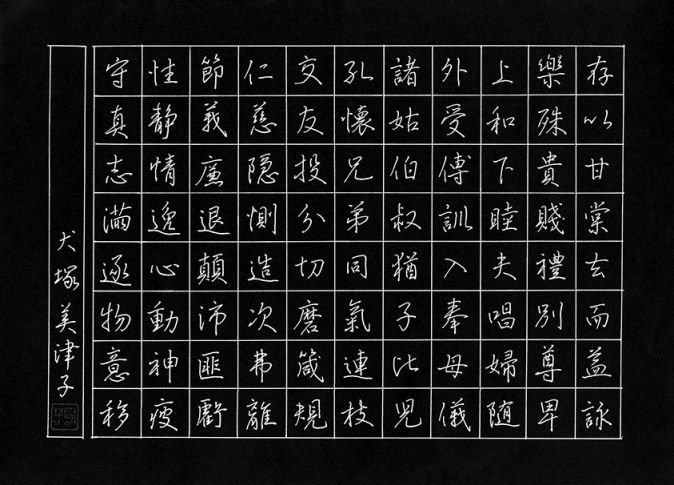 存以甘棠去而益詠
樂殊貴賤禮別尊卑
上和下睦夫唱婦随
外受傅訓入奉母儀
諸姑伯叔猶子比児
孔懐兄弟同氣連枝
交友投分切磨箴規
仁慈隠惻造次弗離
節義廉退顛沛匪虧
性静情逸心動神疲
守真志満逐物意移
犬塚美津子